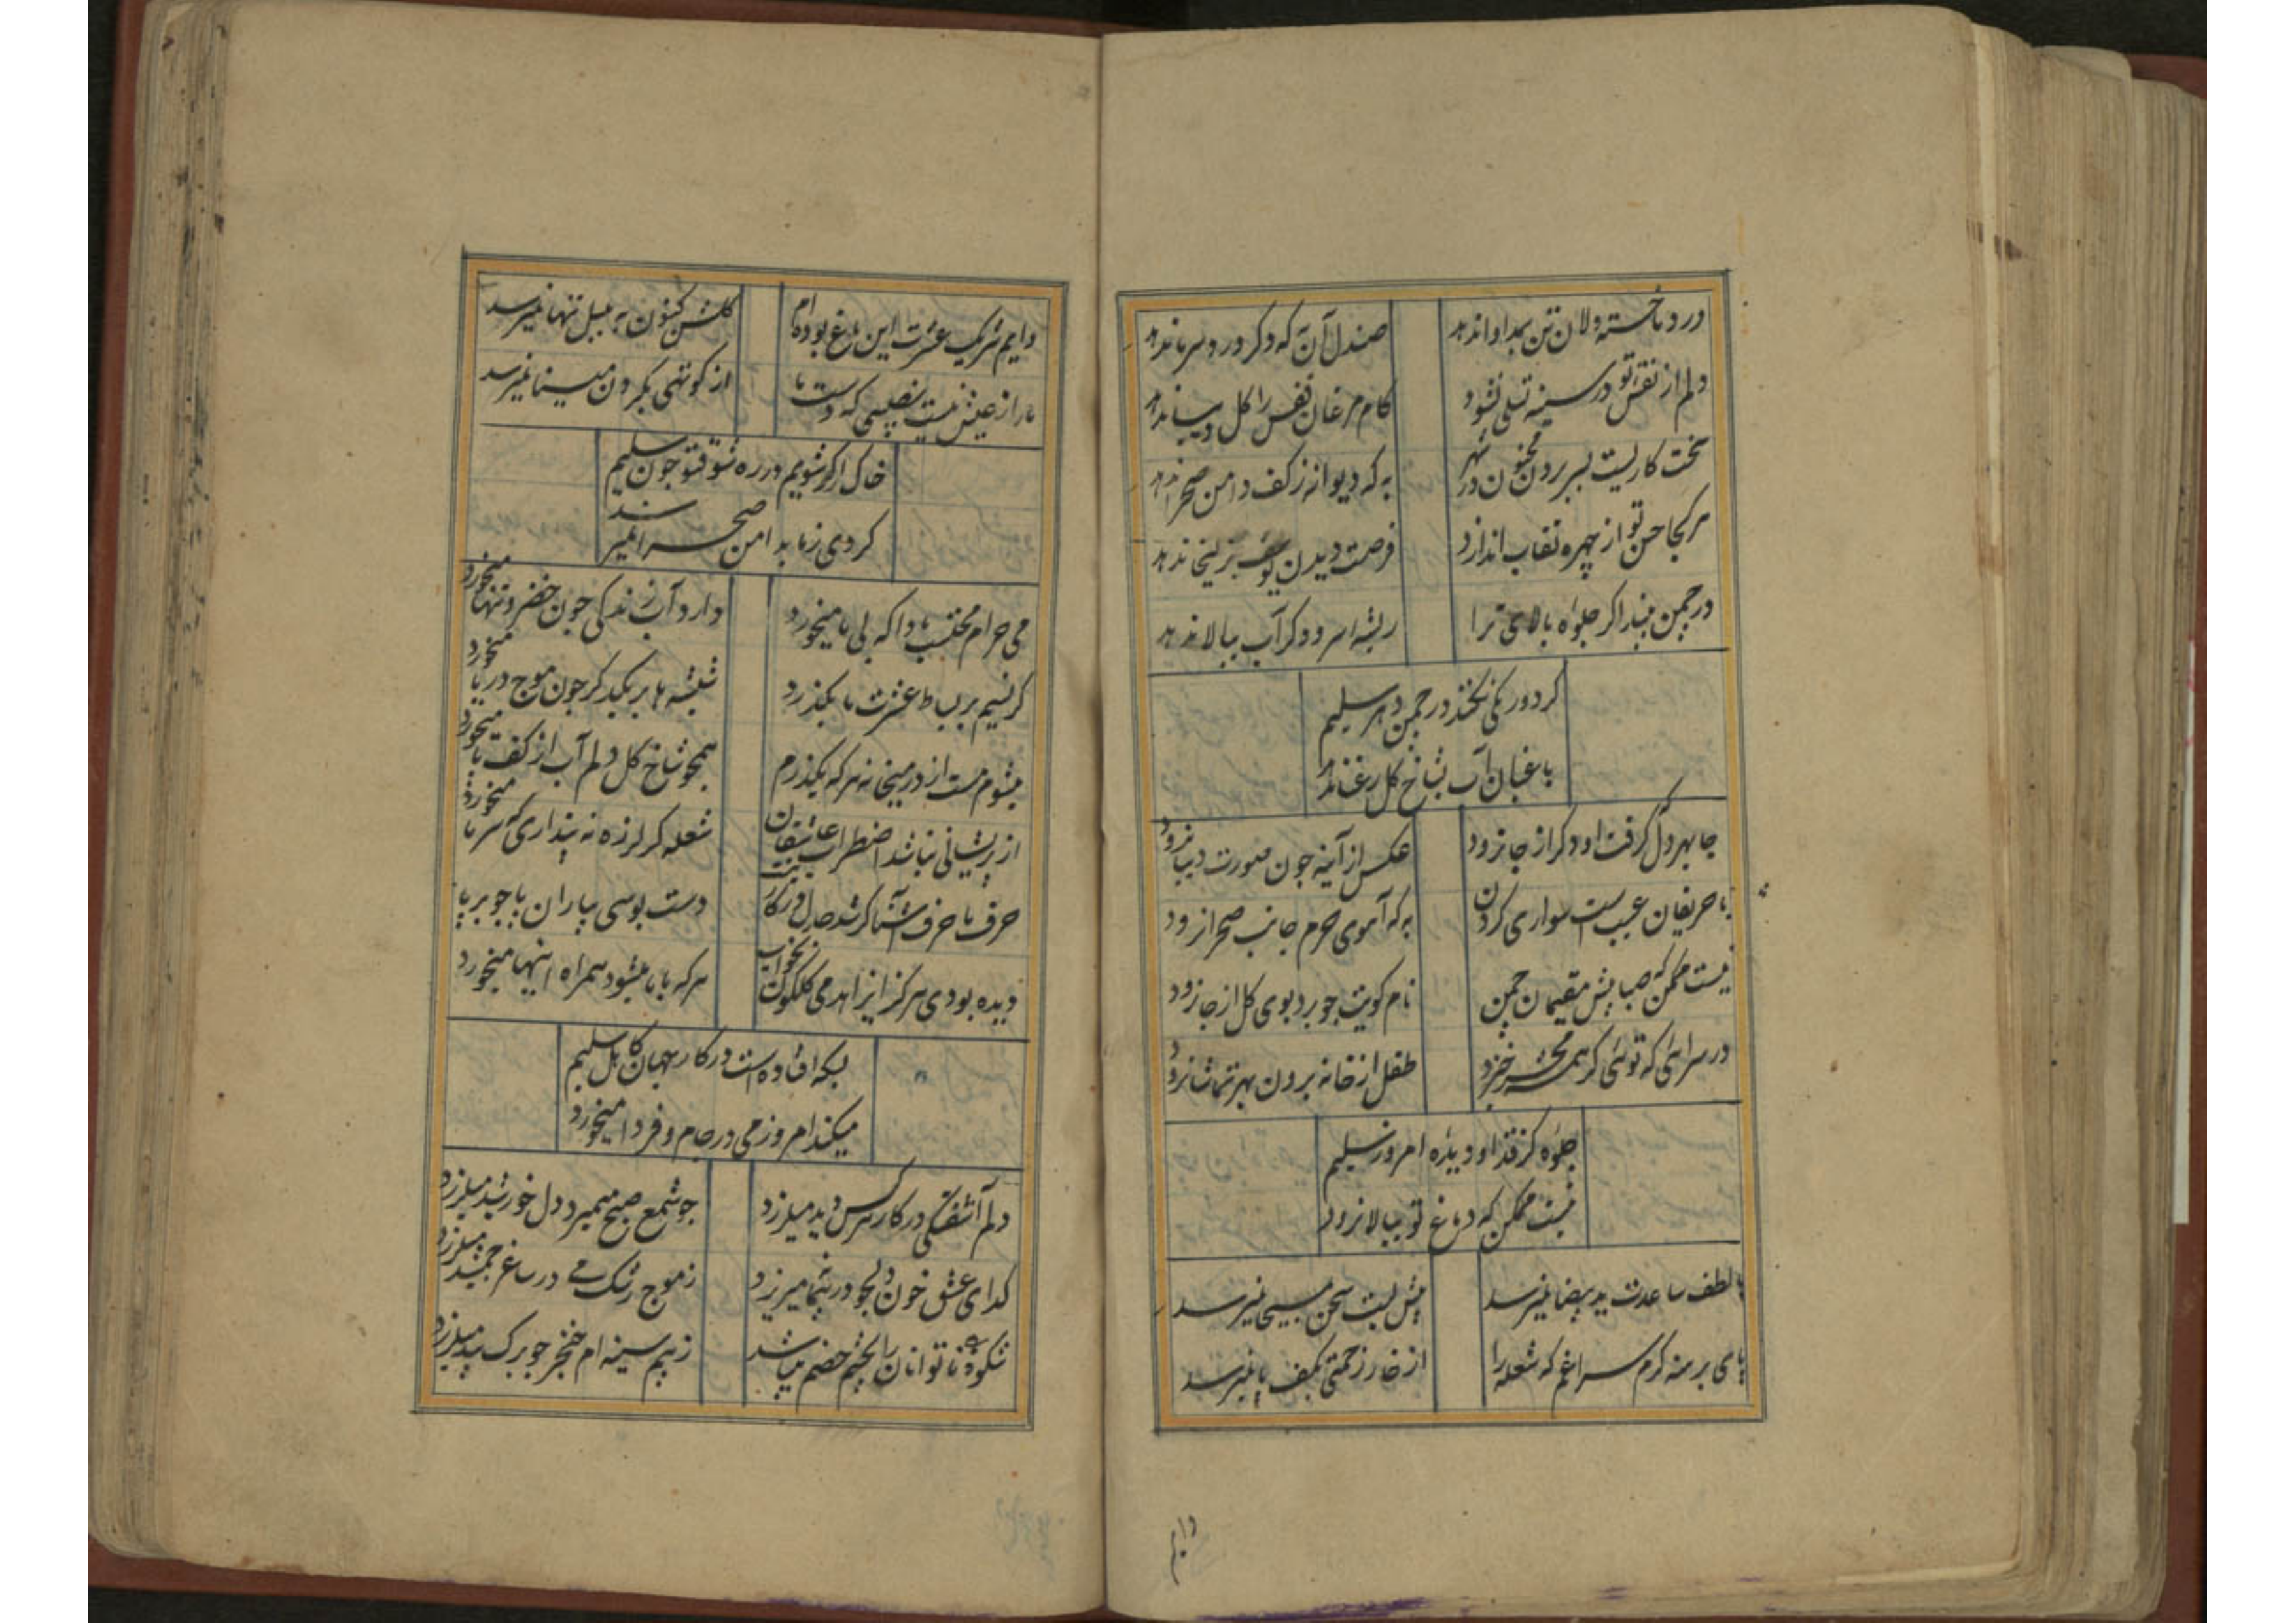 درد ما خسته دلان تن بمداوا ندهد
صندل آن به که دکر دردسر ما ندهد
دلم از نقش تو در سینه تسلی نشود
کام مرغان قفس را کل دیبا ندهد
سخت کاریست بسر بردن مجنون در شهر
به که دیوانه ز کف دامن صحرا ندهد
هر کجا حسن تو از چهره نقاب اندازد
فرصت دیدن یوسف بزلیخا ندهد
در چمن بیند اکر جلوه بالای ترا
ریشه سرو دکر آب ببالا ندهد
کرد و رنکی نکند در چمن دهر سلیم
باغبان آب بشاخ کل رعنا ندهد
جا بهر دل که کرفت او دکر از جا نرود
عکس از آینه چون صورت دیبا نرود
با حریفان عجبست اسواری کردن
به که آهوی حرم جانب صحرا نرود
نیست ممکن که صبا پیش مقیمان چمن
نام کویت چو برد بوی کل از جا نرود
در سرائی که توئی کر همه محشر خیزد
طفل از خانه برون بهر تماشا نرود
جلوه کز قد او دیده امروز سلیم
نیست ممکن که دماغ تو ببالا نرود
با لطف ساعدت ید بیضا نمیرسد
پیش لبت سخن بمسیحا نمیرسد
پای برهنه کرم سراغم که شعله را
از خار زحمتی بکف پا نمیرسد
دایم
دایم شریک عشرت این باغ بوده ام
کلشن کنون به بلبل تنها نمیرسد
ما را ز عیش نیست نصیبی که دست ما
از کوتهی بکردن مینا نمیرسد
خاک ار شویم در ره شوق تو چون سلیم
کردی ز ما بدامن صحرا نمیرسد
می حرام محتسب بادا که بی ما میخورد
دارد آب زندکی چون خضر و تنها میخورد
کر نسیم بر بساط عشرت ما بکذرد
شیشه ها بر یکدکر چون موج دریا میخورد
میشوم مست از در میخانه هر که بکذرم
همچو شاخ کل دلم آب از کف پا میخورد
از پریشانی نباشد اضطراب عاشقان
شعله کر لرزد نه پنداری که سرما میخورد
حرف با حرف آشنا کر شد جدل در کار نیست
دست بوسی بیاران پا چو بر پا میخورد
دیده بودی هرکز ای زاهد می کلکون بخواب
هر که با ما میشود همراه اینها میخورد
بسکه افتاده است در کار جهان کاهل سلیم
میکند امروز می در جام و فردا میخورد
دلم آشفتکی در کار هر کس دید میلرزد
چو شمع صبح میمیرد دل خورشید میلرزد
کدای عشق خون دل چو در میریزد
ز موج رشک می در ساغر جمشید میلرزد
شکوه ناتوانان را بچشم خصم میباشد
ز بیم سینه ام خنجر چو برک بید میلرزد